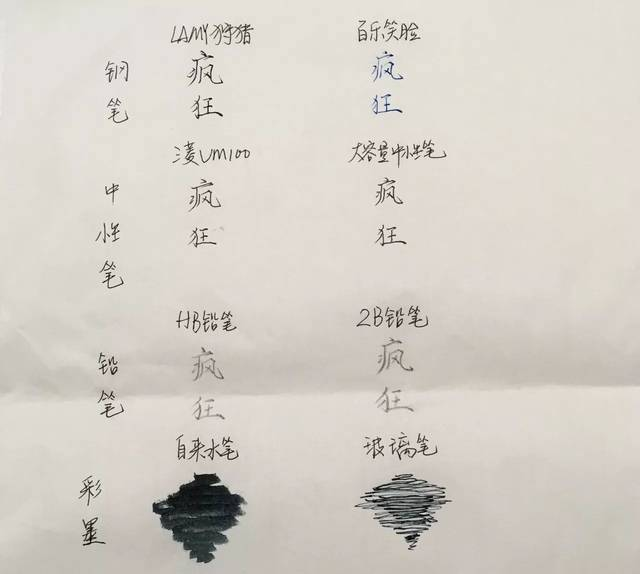 LAMY狩猎 百乐笑脸
钢笔
疯狂 疯狂
三菱UM100 大容量中性笔
中性笔
疯狂 疯狂
HB铅笔 2B铅笔
铅笔
疯狂 疯狂
自来水笔 玻璃笔
彩墨